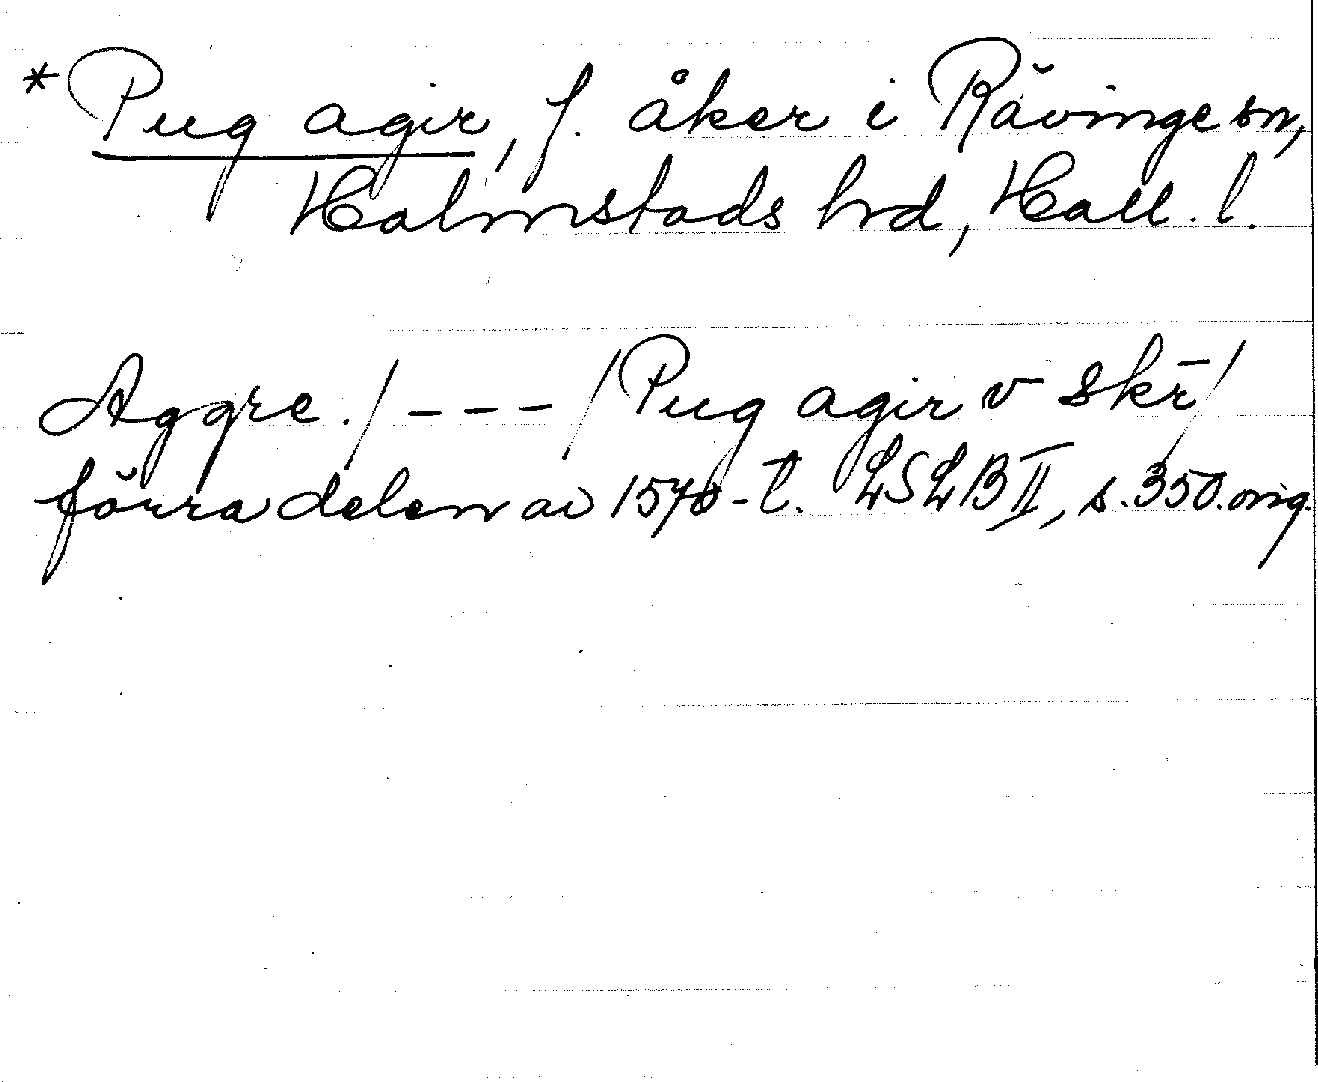 *Pug agir, f. åker i Rävinge sn,
Halmstads hrd, Hall. l.
Aggre./ - - - /Pug agir v skr̄/
förra delen av 1570-t. LSLB II, s. 350. orig.